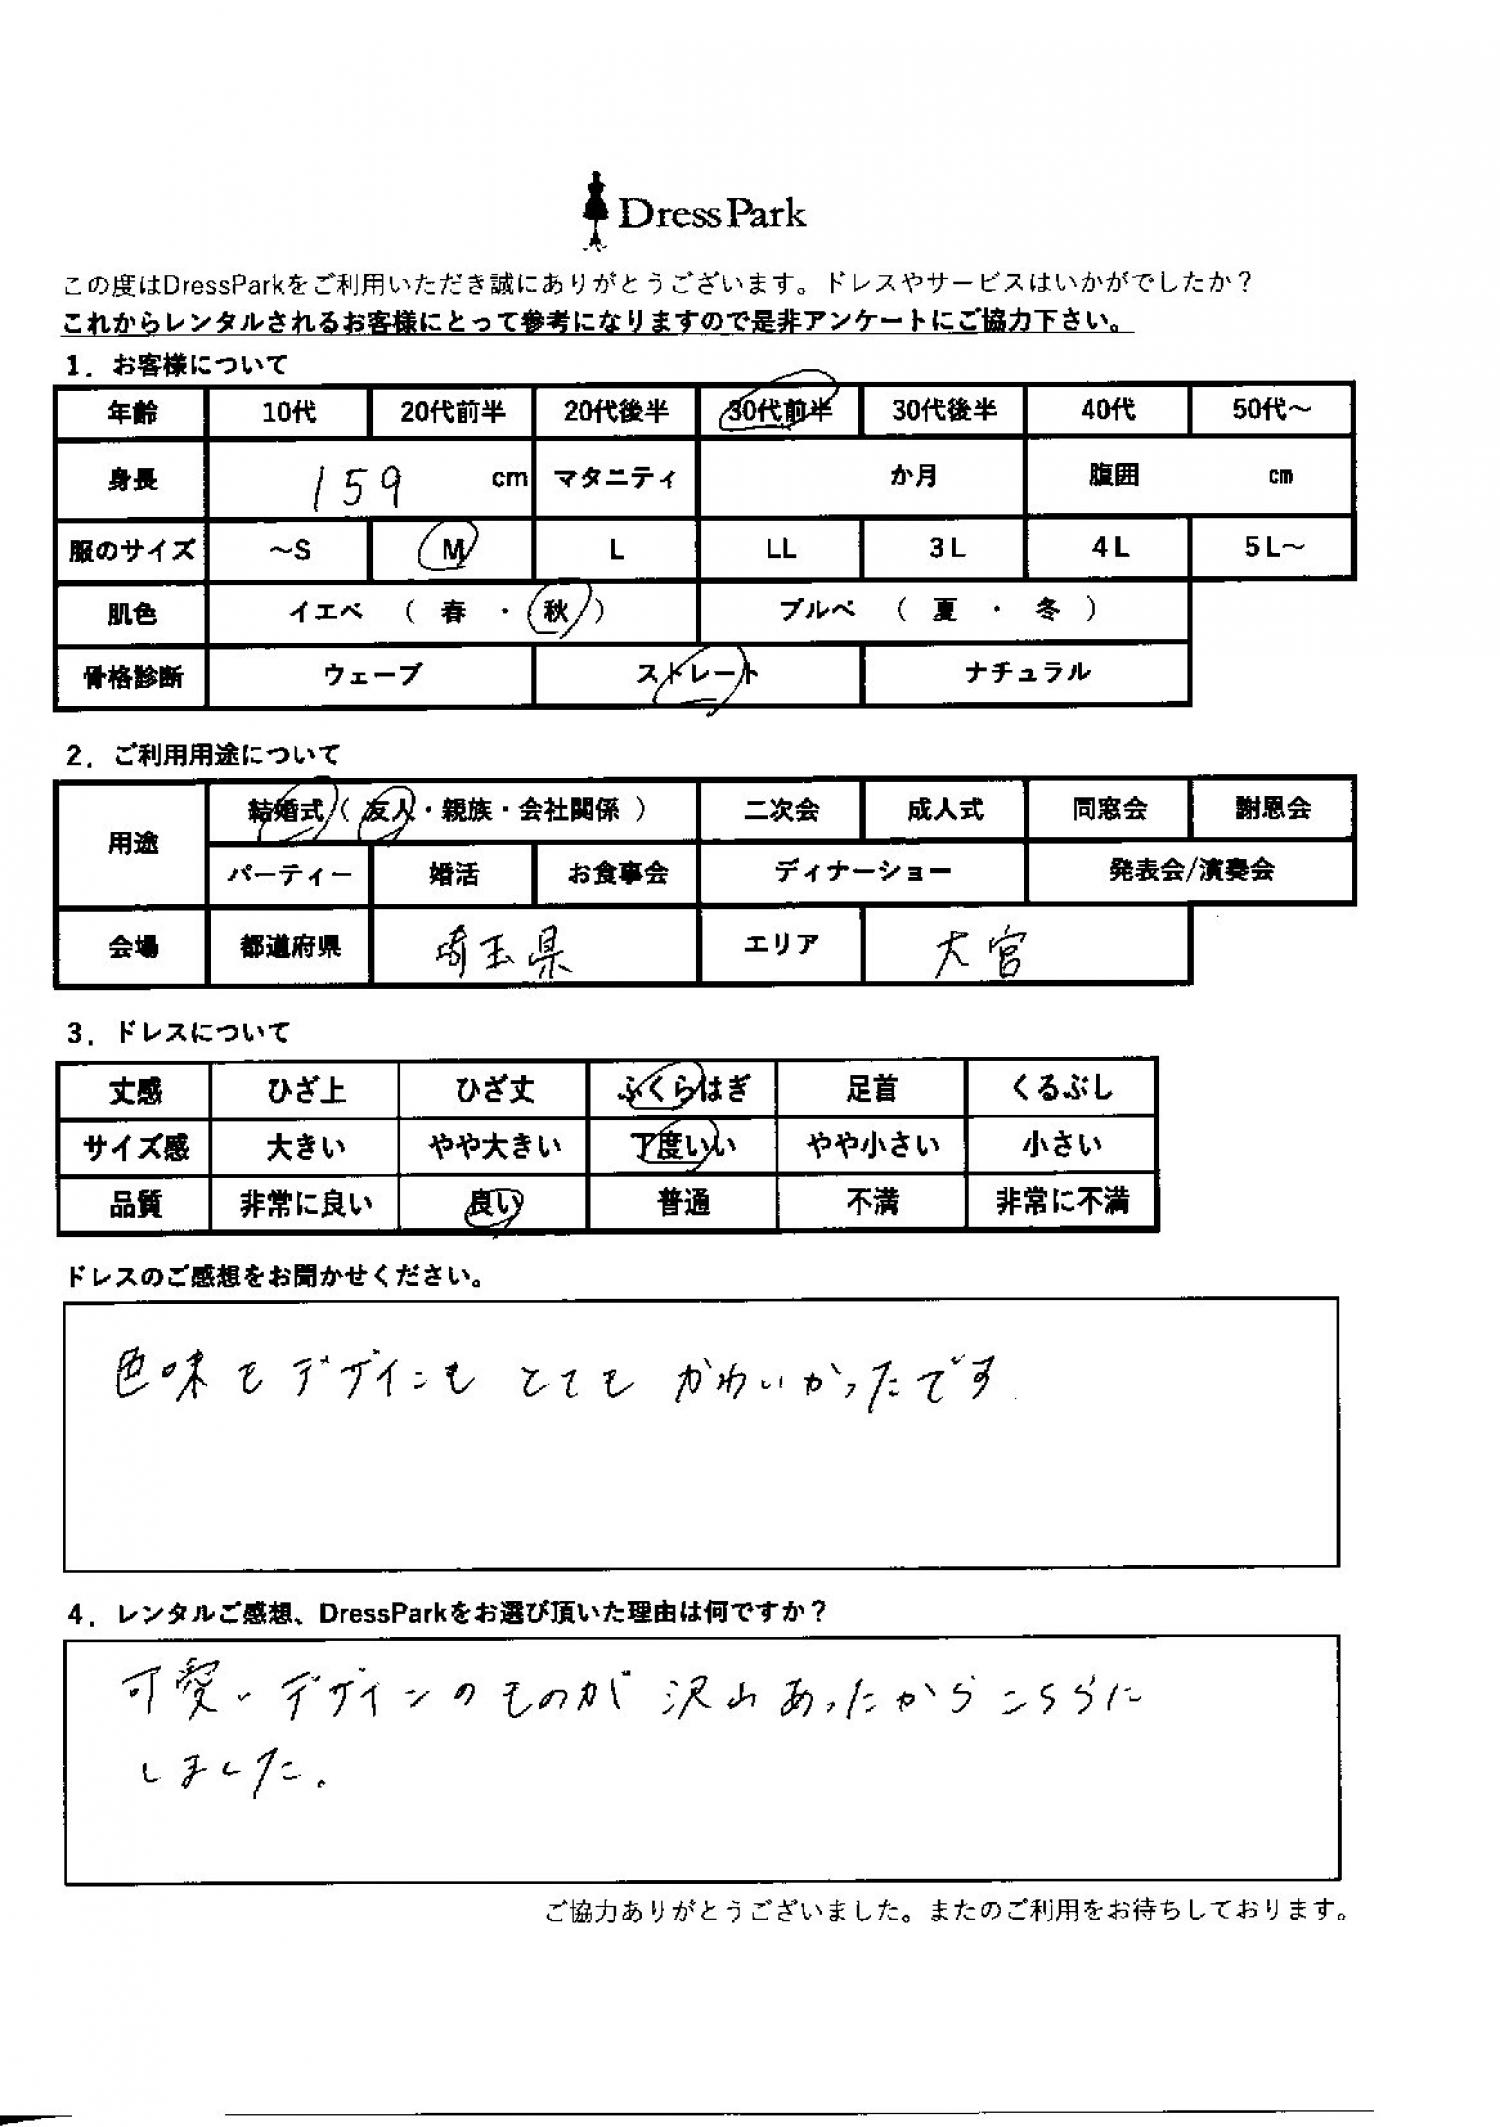 DressPark
この度はDressParkをご利用いただき誠にありがとうございます。ドレスやサービスはいかがでしたか？
これからレンタルされるお客様にとって参考になりますので是非アンケートにご協力下さい。
1．お客様について
年齢 10代 20代前半 20代後半 30代前半 30代後半 40代 50代～
身長 159 cm マタニティ か月 腹囲 cm
服のサイズ ～S M L LL 3L 4L 5L～
肌色 イエベ （ 春 ・ 秋 ） ブルベ （ 夏 ・ 冬 ）
骨格診断 ウェーブ ストレート ナチュラル
2．ご利用用途について
用途 結婚式（ 友人・親族・会社関係 ） 二次会 成人式 同窓会 謝恩会
パーティー 婚活 お食事会 ディナーショー 発表会/演奏会
会場 都道府県 埼玉県 エリア 大宮
3．ドレスについて
丈感 ひざ上 ひざ丈 ふくらはぎ 足首 くるぶし
サイズ感 大きい やや大きい 丁度いい やや小さい 小さい
品質 非常に良い 良い 普通 不満 非常に不満
ドレスのご感想をお聞かせください。
色味もデザインも とても かわいかったです
4．レンタルご感想、DressParkをお選び頂いた理由は何ですか？
可愛いデザインのものが 沢山あったからこちらに
しました。
ご協力ありがとうございました。またのご利用をお待ちしております。